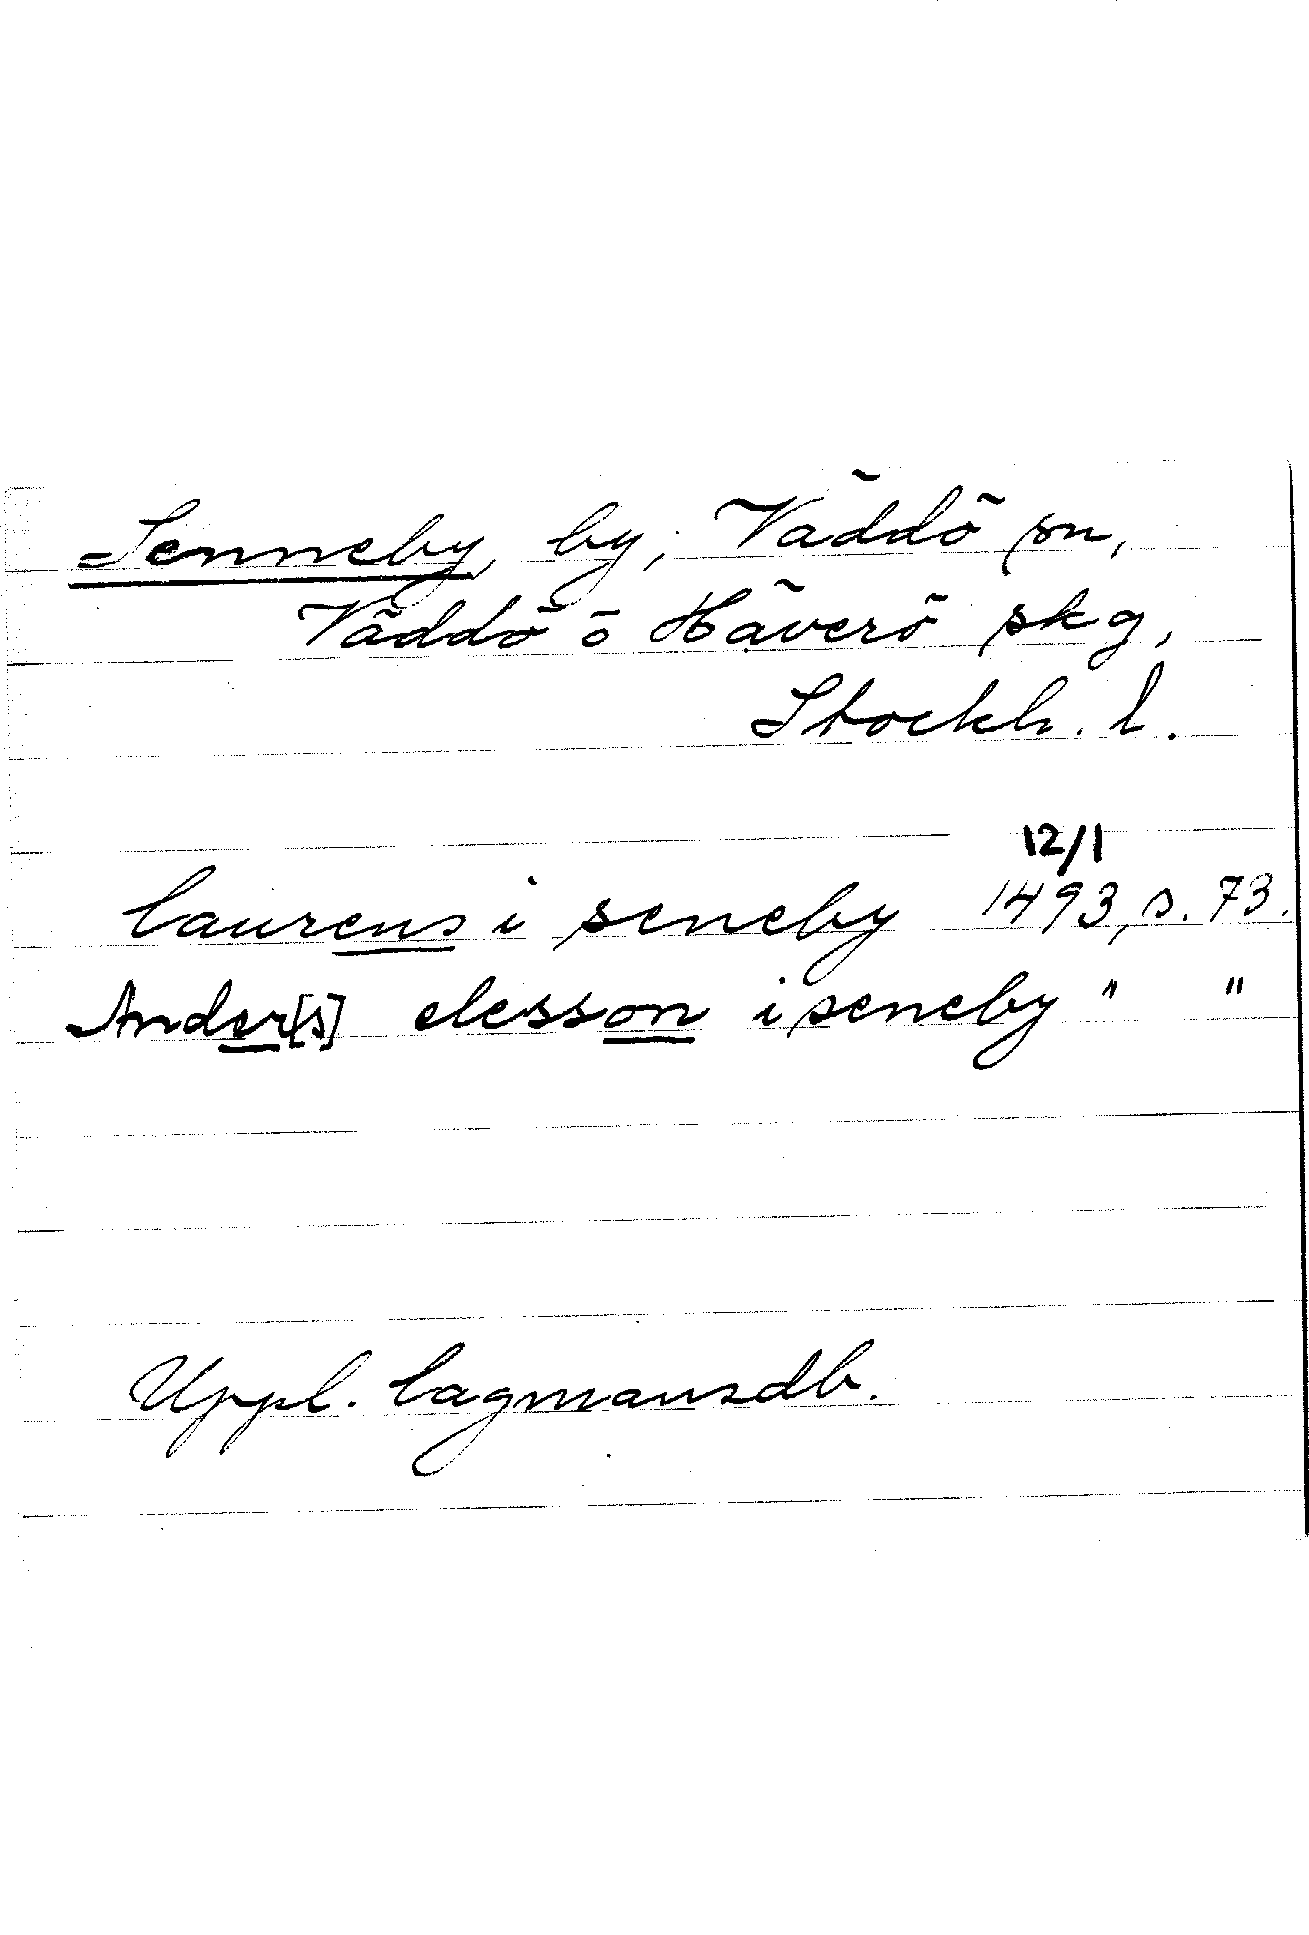 Senneby, by, Väddö sn,
Väddö o Häverö skg,
Stockh. l.
12/1
laurens i seneby 1493, s. 73.
Ander[s] elesson i seneby " "
Uppl. lagmansdb.